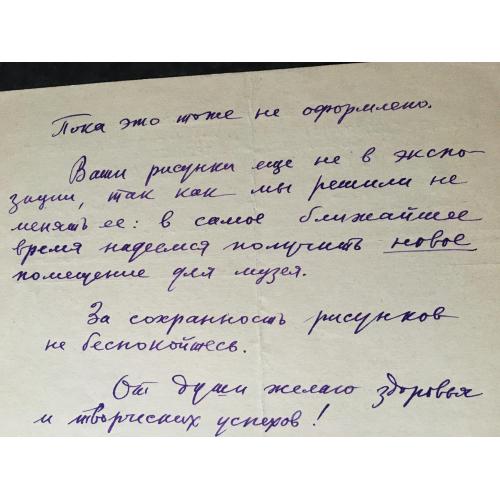 Пока это тоже не оформлено.
Ваши рисунки еще не в экспо-
зиции, так как мы решили не
менять ее: в самое ближайшее
время надеемся получить новое
помещение для музея.
За сохранность рисунков
не беспокойтесь.
От души желаю здоровья
и творческих успехов!